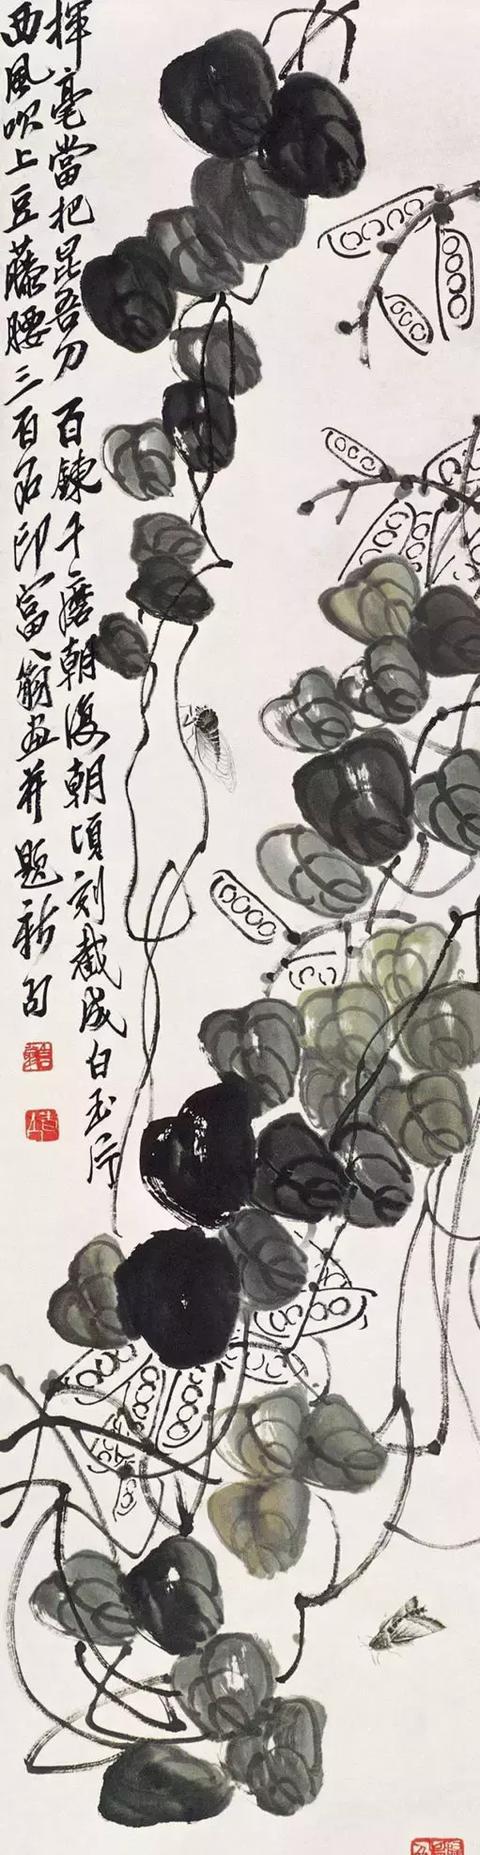 揮毫當把昆吾刀百鍊千磨朝復朝頃刻截成白玉片
西風吹上豆藤腰三百石印富翁畫并題新句